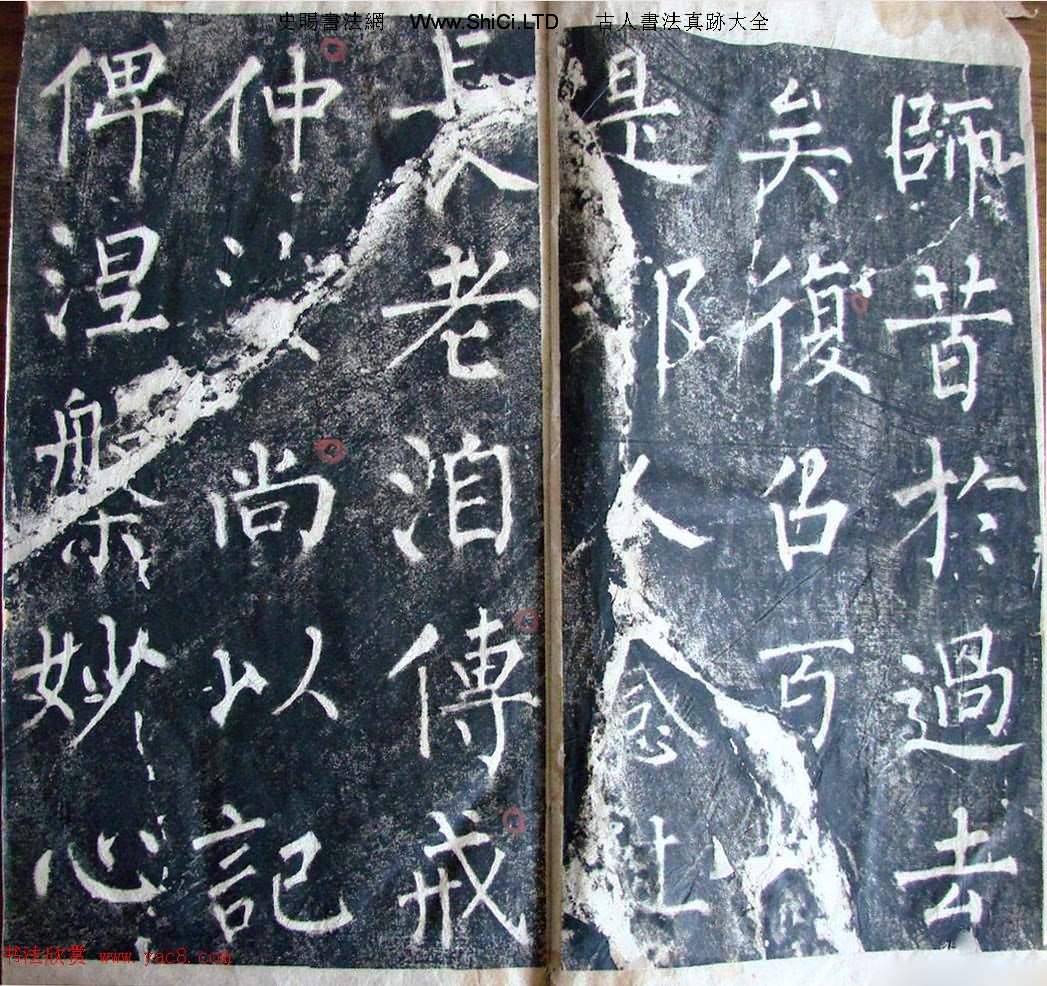 史賜書法網 Www.ShiCi.LTD 古人書法真跡大全
師昔於過去
矣復召百
是 人念
長老洎傳戒
仲 尚以記
俾涅槃妙心
书法欣赏 www.yac8.com